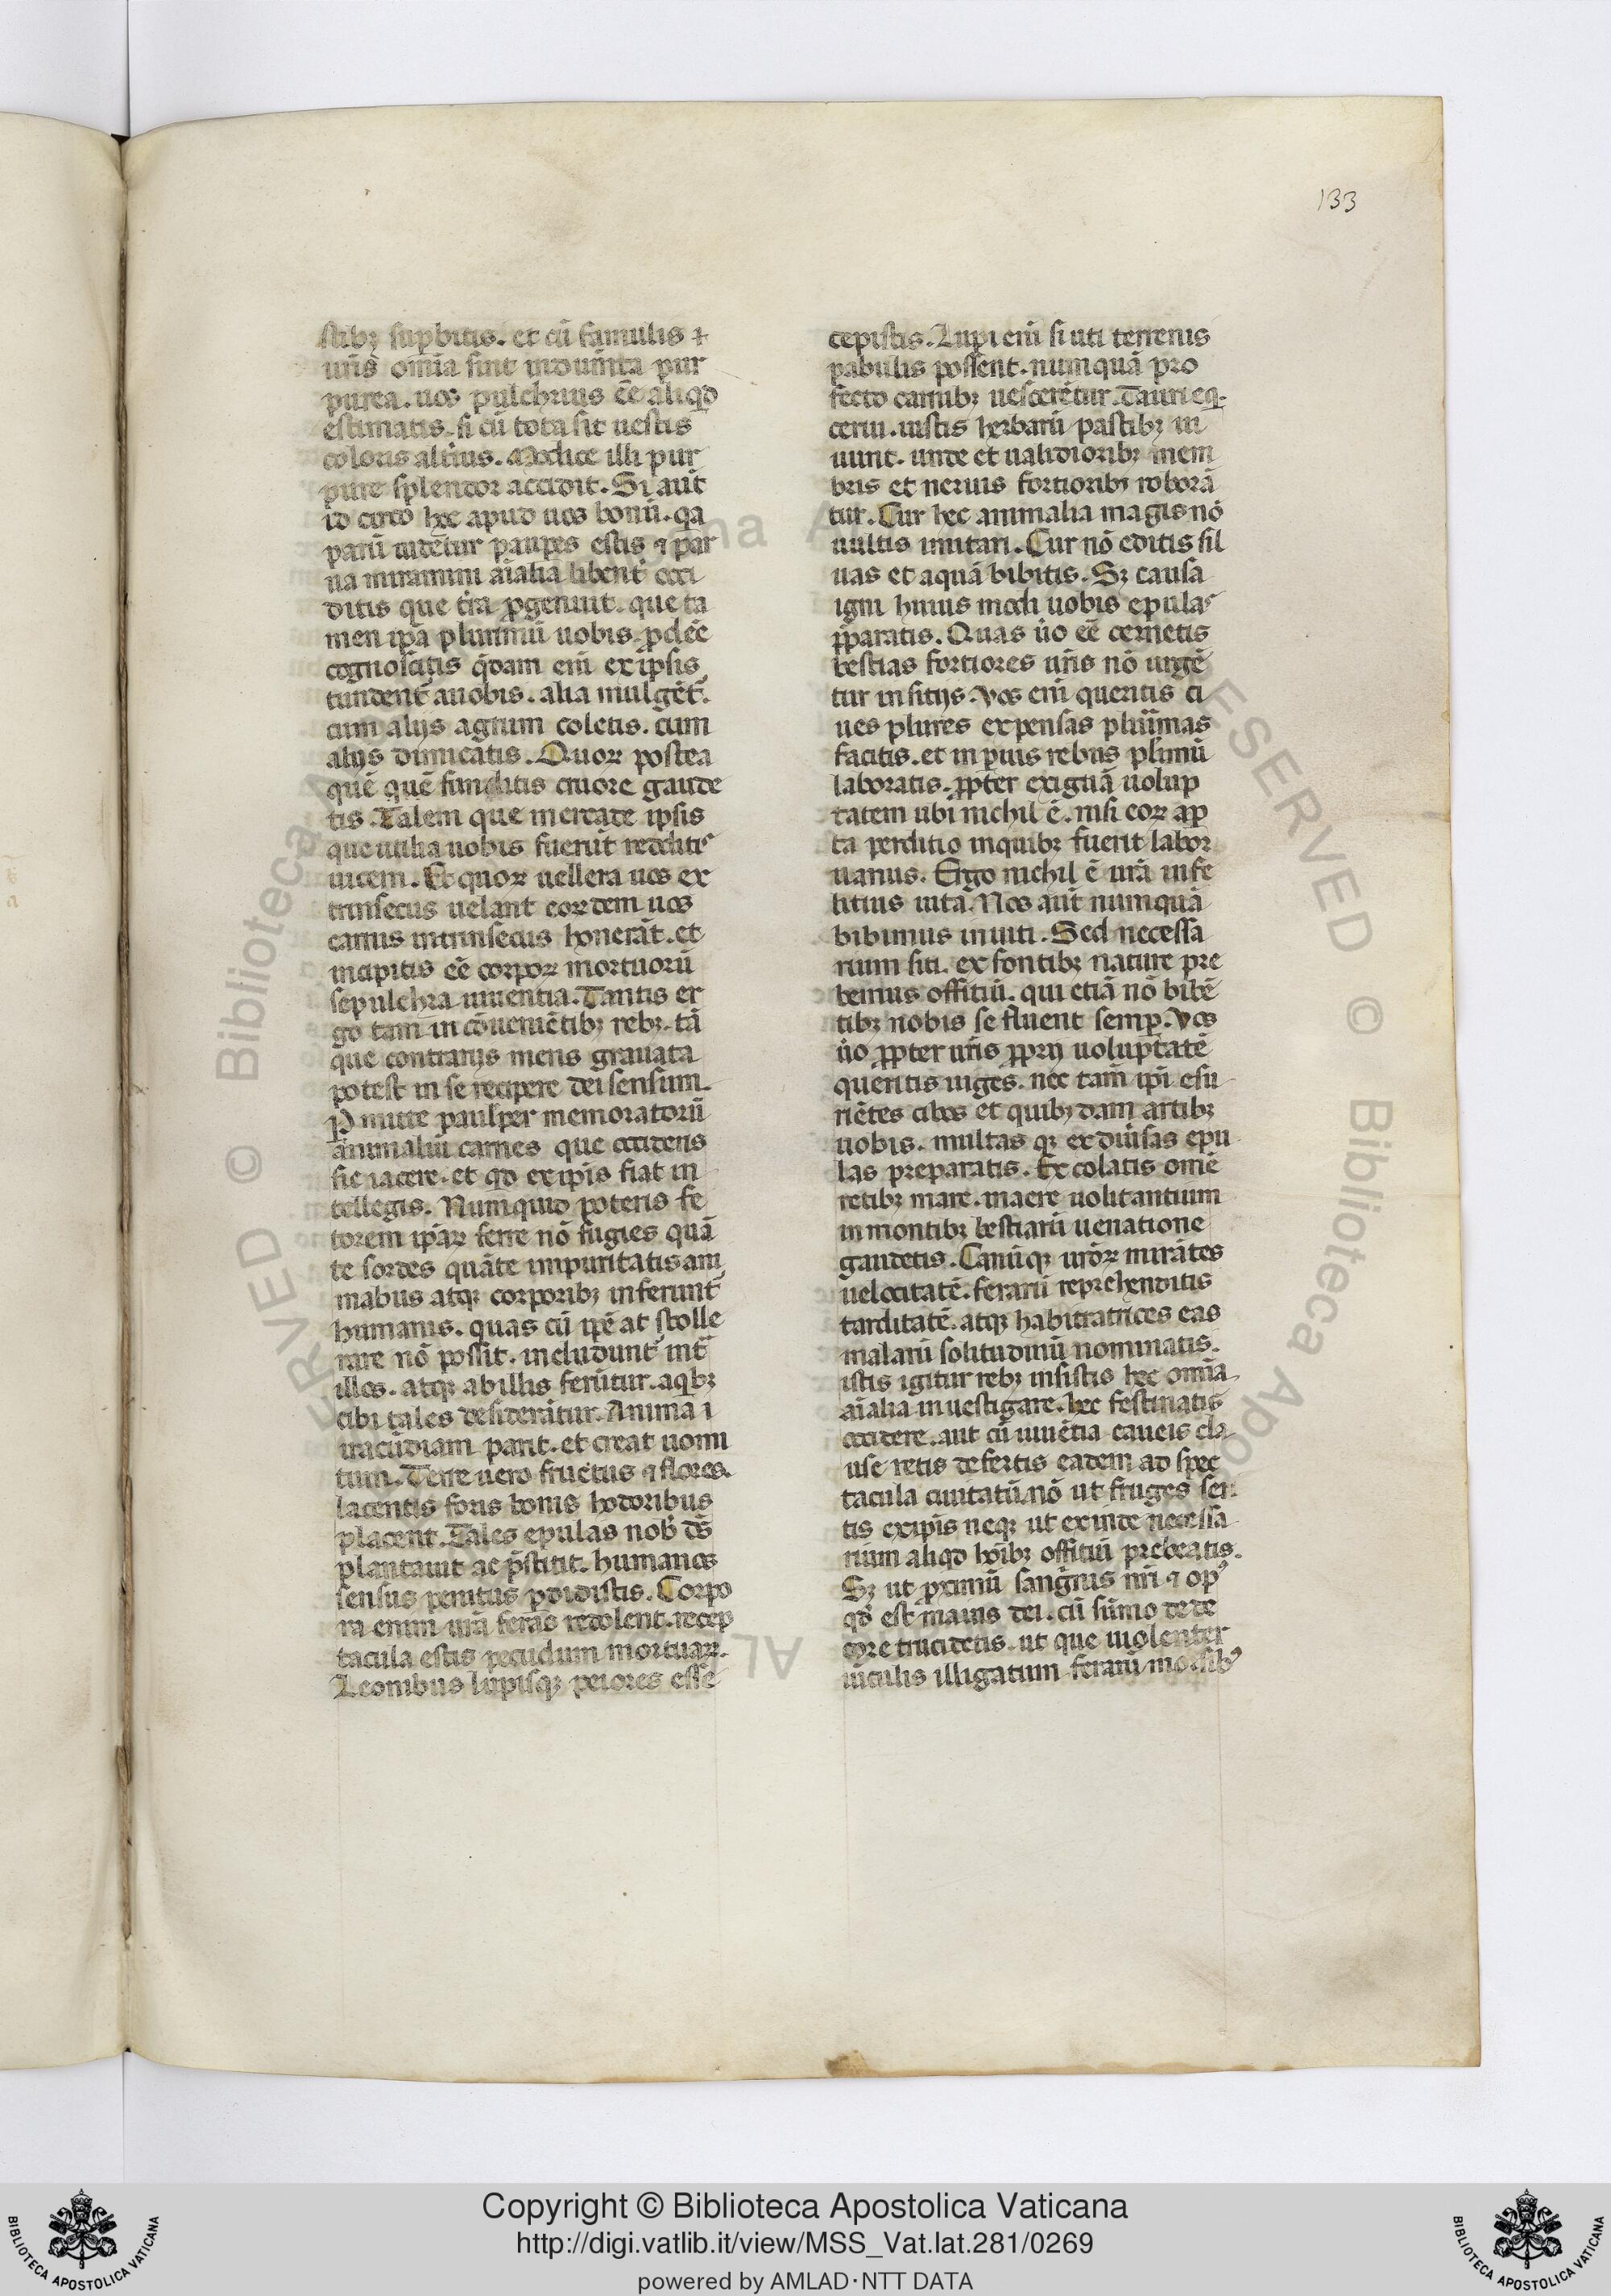 133
stibꝫ sup̱bitis. et cū famulis ⁊
ur̄is om̄ia sint indum̄ta pur
purea. uos pulchrius eē̄ aliqd̄
estimatis. si cū tota sit uestis
coloris alt̄ius. Modice illi pur
pure splendor accidit. Si aūt
id circo hec apud uos bonū. qa
parū uidētur paup̱es estis ⁊ par
ua miramini aīalia libent̄ occi
ditis que t̄ra ꝓgenuit. que ta
men ip̄a plurimū uobis ꝓdeē̄
cognoscitis q̄dam enī ex ip̄sis
tundent̄ auobis. alia mulgēt̄.
cum alijs agrum coletis. cum
alijs dimicatis. Quoꝝ postea
quē quē funditis cruore gaude
tis. Talem que mercede ipsis
que utilia uobis fuerūt redditis
uicem. Et quoꝝ uellera uos ex
trinsecus uelant eordem uos
carnis intrinsecus honerāt. et
incipitis eē̄ corpoꝝ mortuorū
sepulchra uiuentia. Tantis er
go tam in cōueniētibꝫ rebꝫ. tā
que contrarijs mens grauata
potest in se recipere dei sensum.
P̱ mitte paulsper memoratorū
animaliū carnes que occidens
sic iacere. et qd̄ ex ip̄is fiat in
tellegis. Numquid poteris fe
torem ip̄aꝝ ferre nō fugies quā
te sordes quāte impuritatis ani
mabus atqꝫ corporibꝫ inferunt̄
humanis. quas cū neē at stolle
rare nō possit. includunt̄ int̄
illos. atqꝫ ab illis ferūtur. aqbꝫ
cibi tales desiderātur. Anima i
racūdiam parit. et creat uomi
tum. Terre uero fructus ⁊ flores.
Iacentis foris bonis hodoribus
placent. Tales epulas nob̄ ds̄
plantauit ac p̄stitit. humanos
sensus penitus ꝑdidistis. Corpo
ra enim ur̄a feras redolent. recep
tacula estis pecudum mortuaꝝ.
Leonibus lupisqꝫ peiores esse
cepistis. Lupi enī si uti terrenis
pabulis possent. numquā pro
fecto carnibꝫ uescerētur. Tauri eq.
cerui. iustis herbarū pastibꝫ ui
uunt. unde et ualidioribꝫ mem
bris et neruis fortioribꝫ roborā
tur. Cur hec animalia magis nō
uultis imitari. Cur nō editis sil
uas et aquā bibitis. Sꝫ causa
igni huius modi uobis epulas
p̄paratis. Quas ūo eē̄ cernetis
bestias fortiores ur̄is nō urgē
tur in sitijs. Vos enī queritis ci
ues plures expensas plurimas
facitis. et in ꝑuis rebus plīmū
laboratis. ꝓpter exiguā uolup
tatem ubi nichil ē. nisi eoꝝ aꝑ
ta perditio inquibꝫ fuerit labor
uanus. Ergo nichil ē urā infe
litius uitā. Nos aūt numquā
bibimus inuiti. Sed necessa
rium siti. ex fontibꝫ nature pre
bemus offitiū. qui etiā nō bibē
tibꝫ nobis se fluent semp̱. Vos
ūo ꝓpter ur̄is ꝓprij uoluptatē
queritis uiges. nec tam̄ ip̄i esu
riētes cibos et quibꝫdam artibꝫ
uobis. multas qꝫ ex diūsas epu
las preparatis. Ex colatis om̄ē
retibꝫ mare. in aere uolitantium
in montibꝫ bestiarū uenatione
gaudetis. Canūqꝫ uroꝝ mirātes
uelocitatē. ferarū reprehenditis
tarditatē. atqꝫ habitatrices eas
malarū solitudinū nominatis.
istis igitur rebꝫ insistis hec om̄ia
aīalia inuestigare. hec festinatis
occidere. aut cū uiuētia caueis cla
use retis defertis eadem ad spec
tacula ciuitatū. nō ut fruges ser
tis ex ip̄is neqꝫ ut exinde necessa
rium aliqd̄ hoībꝫ offitiū prebeatis.
Sꝫ ut ꝓximū sanguis nr̄i ⁊ opꝰ
qd̄ est manus dei. cū sūmo dede
core trucidetis. ut que uiolenter
uiculis illigatum ferarū morsibꝰ
Copyright © Biblioteca Apostolica Vaticana
http://digi.vatlib.it/view/MSS_Vat.lat.281/0269
powered by AMLAD·NTT DATA